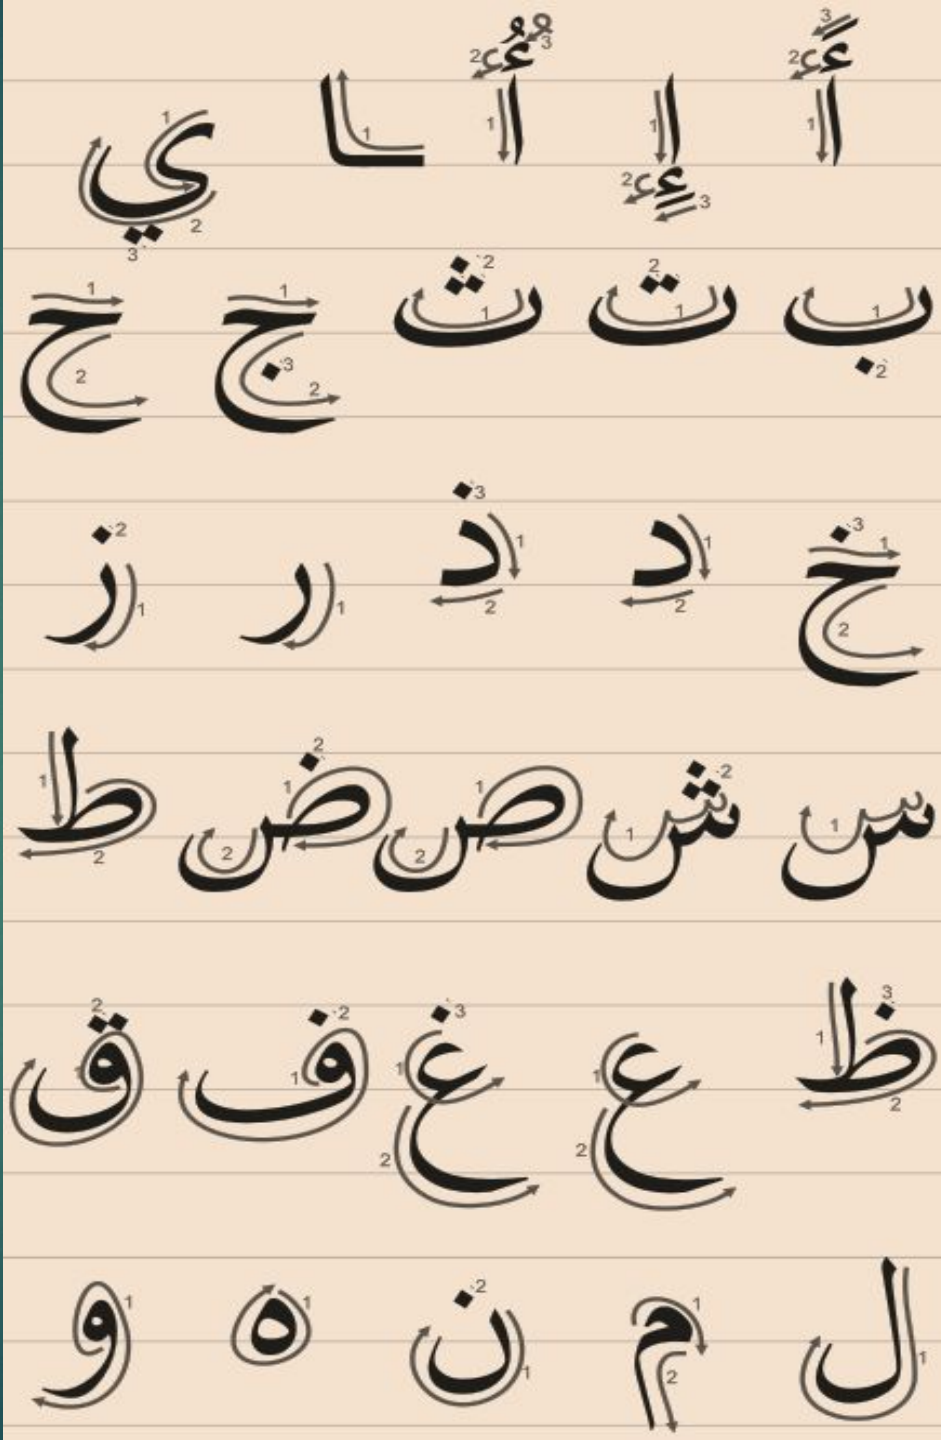 أً إٍ أٌ ـا ي
ب ت ث ج ح
خ د ذ ر ز
س ش ص ض ط
ظ ع غ ف ق
ل م ن ه و